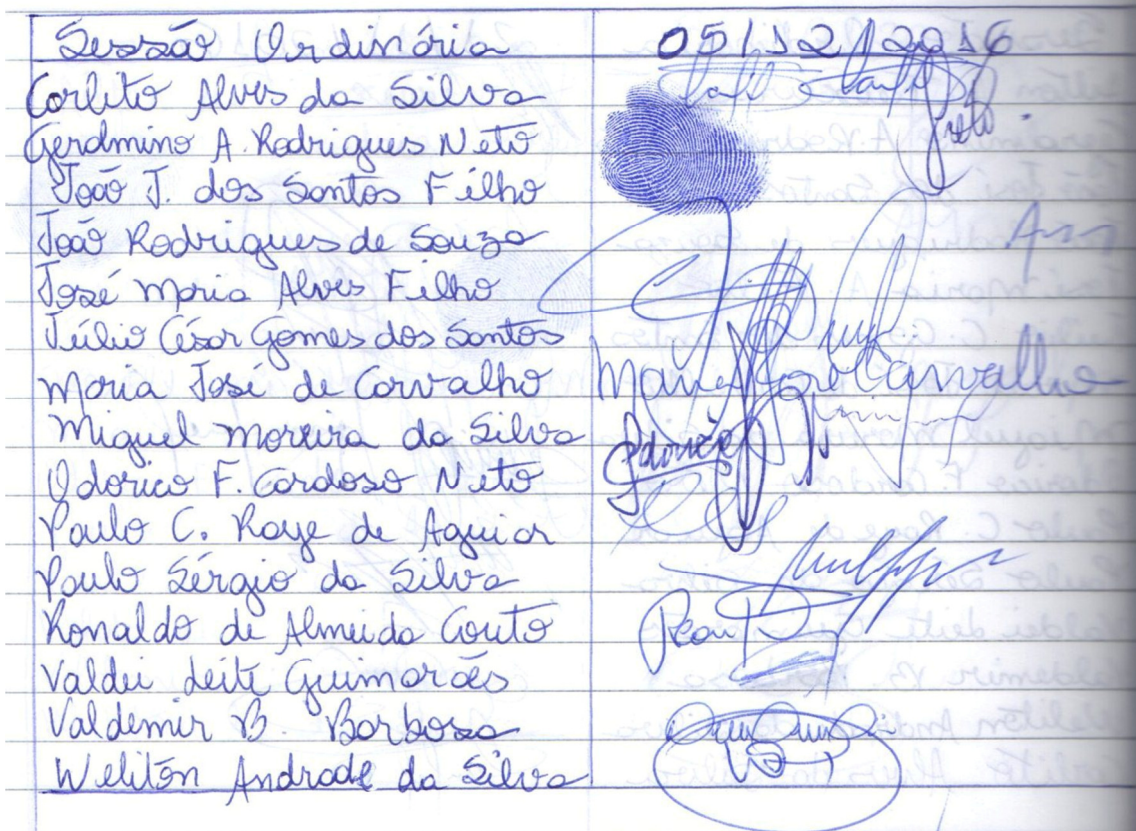 Sessão Ordinária 05/12/2016
Carlito Alves da Silva
Gerdmino A. Rodrigues Neto Neto
João J. dos Santos Filho
João Rodrigues de Souza
José Maria Alves Filho
Júlio César Gomes dos Santos
Maria José de Carvalho Maria José Carvalho
Miguel Moreira da Silva
Odorico F. Cardoso Neto Odorico
Paulo C. Raye de Aguiar
Paulo Sérgio da Silva
Ronaldo de Almeida Couto
Valdei Leite Guimarães
Valdemir B. Barbosa
Weliton Andrade da Silva